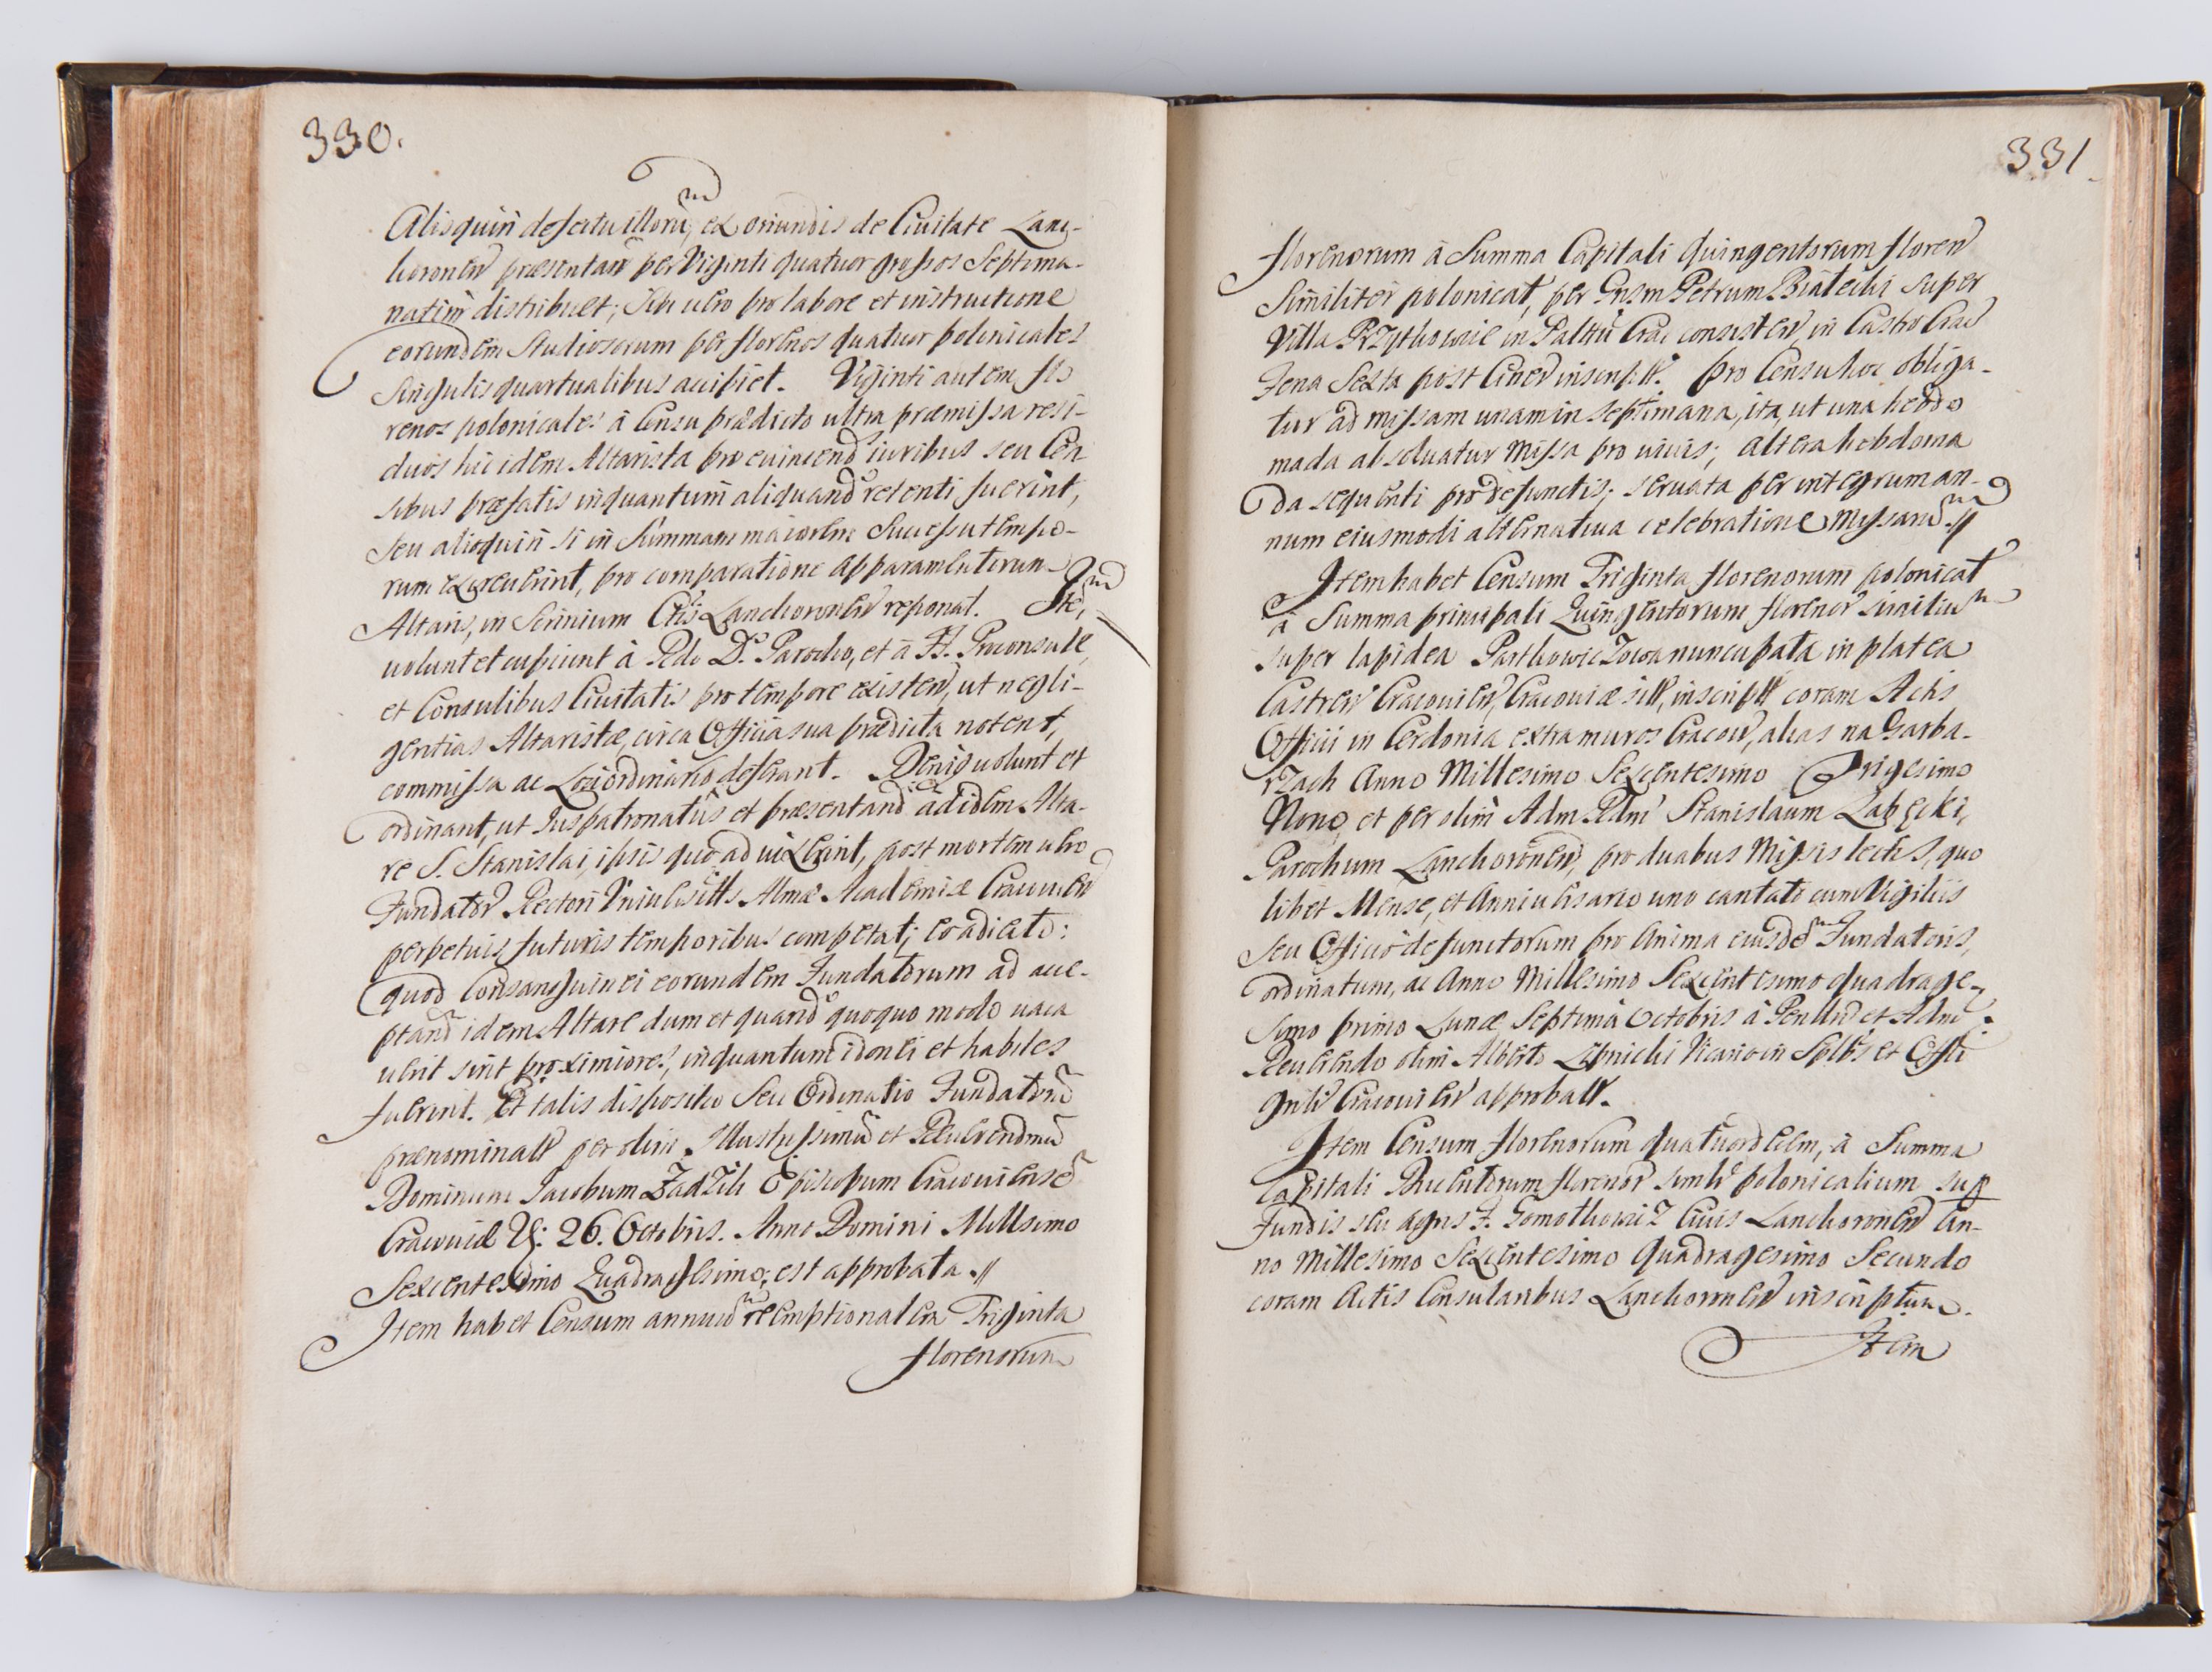 330.
Alioquin defectu illorum, ex oriundis de Civitate Lanc-
koronen praesentan per Viginti quatuor grossos Septima-
natim distribuet; Sibi vero pro labore et instructione
eorundem Studiosorum per florenos quatuor polonicales
Singulis quartualibus accipiet. Viginti autem flo
renos polonicales à Censu praedicto ultra praemissa resi-
duos hic idem Altarista pro evincend iuribus seu Cen
sibus praefatis inquantum aliquand retenti fuerint,
Seu alioquin si in Summam maiorem Successu tempo-
rum excreverint, pro comparatione apparamentorum
Altaris, in Scrinium Lanckoronen reponat. Item
volunt et cupiunt à Rdo D. Parocho, et à FF. Proconsule,
et Consulibus Civitatis pro tempore existen, ut negli-
gentias Altaristae, circa Officia sua praedicta notent,
commissa ac Loci ordinario deferant. Deniq volunt et
ordinant, ut Iuspatronatus et praesentand ad idem Alta-
re S. Stanislai, ipsis quo ad vixerint, post mortem vero
Fundator Rectori Universitts Almae Academiae Cracovien
perpetuis futuris temporibus competat; eo adiecto:
quod Consanguinei eorundem Fundatorum ad acce-
ptand idem Altare dum et quand quoquo modo vaca
verit sint proximiores, inquantum idonei et habiles
fuerint. Et talis dispositio Seu Ordinatio Fundatorum
praenominatt per olim Illustrissimum et Reverendmum
Dominum Jacobum Zadzik Episcopum Cracoviensem
Cracoviae 26. Octobris. Anno Domini Millesimo
Sexcentesimo Quadragesimo, est approbata.//
Item habet Censum annuum reemptionalem Triginta
florenorum
331
florenorum à Summa Capitali Quingentorum floren
Similiter polonicat, per Gnsm Petrum Białecki super
Villa Przytkowice in Palttu Crac consisten, in Castro Crac
Feria Sexta post Ciner inscriptt. Pro Censu hoc obliga-
tur ad missam unam in septimana, ita, ut una hebdo
mada absolvatur Missa pro vivis; altera hebdoma
da sequenti pro defunctis; servata per integrum an-
num eiusmodi alternativa celebratione Missarum.//
Item habet Censum Triginta florenorum polonicat
à Summa principali Quingentorum florenor similium
super lapidea Partkowiczowa nuncupata in platea
Castren Cracovien, Cracoviae sitt, inscriptt coram Actis
Officii in Cerdonia extra muros Cracov, alias na Garba-
rzach Anno Millesimo Sexcentesimo Trigesimo
Nono, et per olim Adm Rdm Stanislaum Łabęcki,
Parochum Lanckoronen, pro duabus Missis lectis, quo
libet Mense, et Anniversario uno cantato cum Vigiliis
Seu Officio defunctorum pro Anima eiusdem Fundatoris,
ordinatum, ac Anno Millesimo Sexcentesimo quadrage-
simo primo Lunae Septima Octobris à Perllri et Adm
Reverendo olim Alberto Lipnicki Vicario in Spltbs et Offli
Gnli Cracovien approbatt.
Item Censum florenorum quatuordecim, à Summa
Capitali Ducentorum florenor simli polonicalium sup
Fundis seu agris F. Gomotkowicz Civis Lanckoronen An-
no Millesimo Sexcentesimo Quadragesimo Secundo
coram Actis Consularibus Lanckoronen inscriptum.
Item